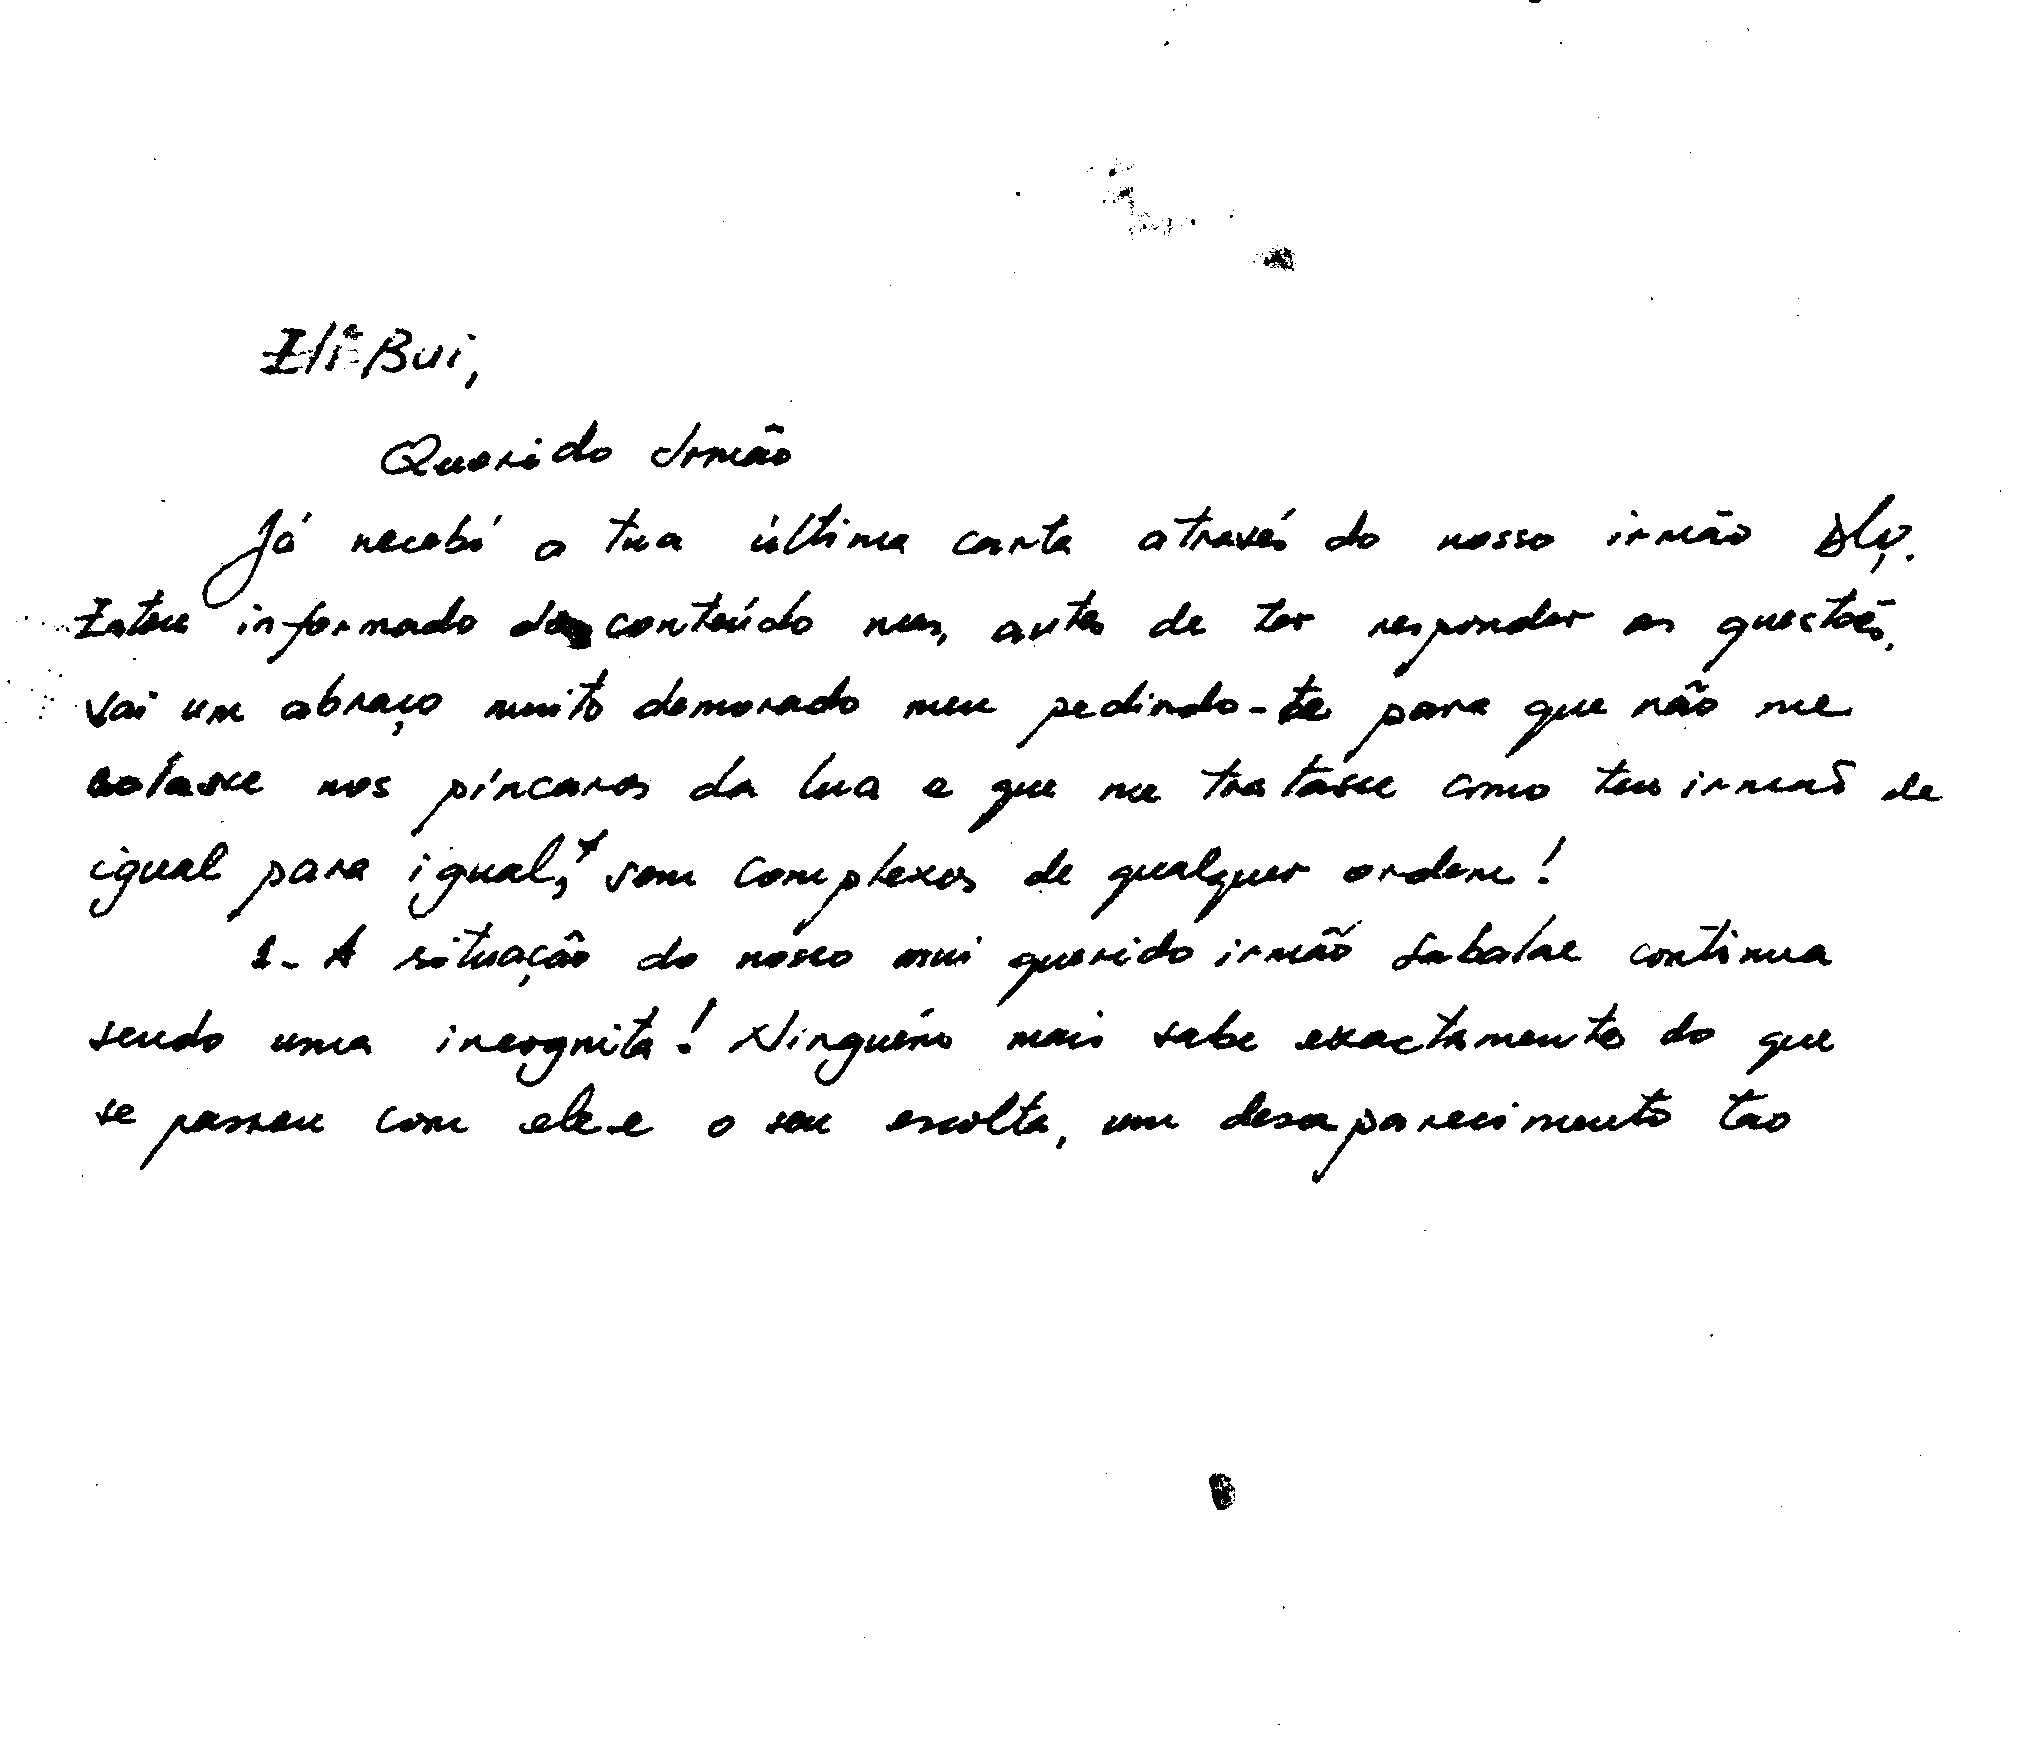 Querido Irmão
Já recebi a tua última carta através do nosso irmão
Estou informado do conteúdo mas, antes de ter responder as questões,
vai um abraço muito demorado meu pedindo-te para que não me
nos píncaros da lua e que me tratasse como teu irmão de
igual para igual, sem complexos de qualquer ordem!
1- A situação do nosso mui querido irmão Sabalae continua
sendo uma incognita! Ninguém mais sabe exactamente do que
se passou com ele e o seu escolta, um desaparecimento tao